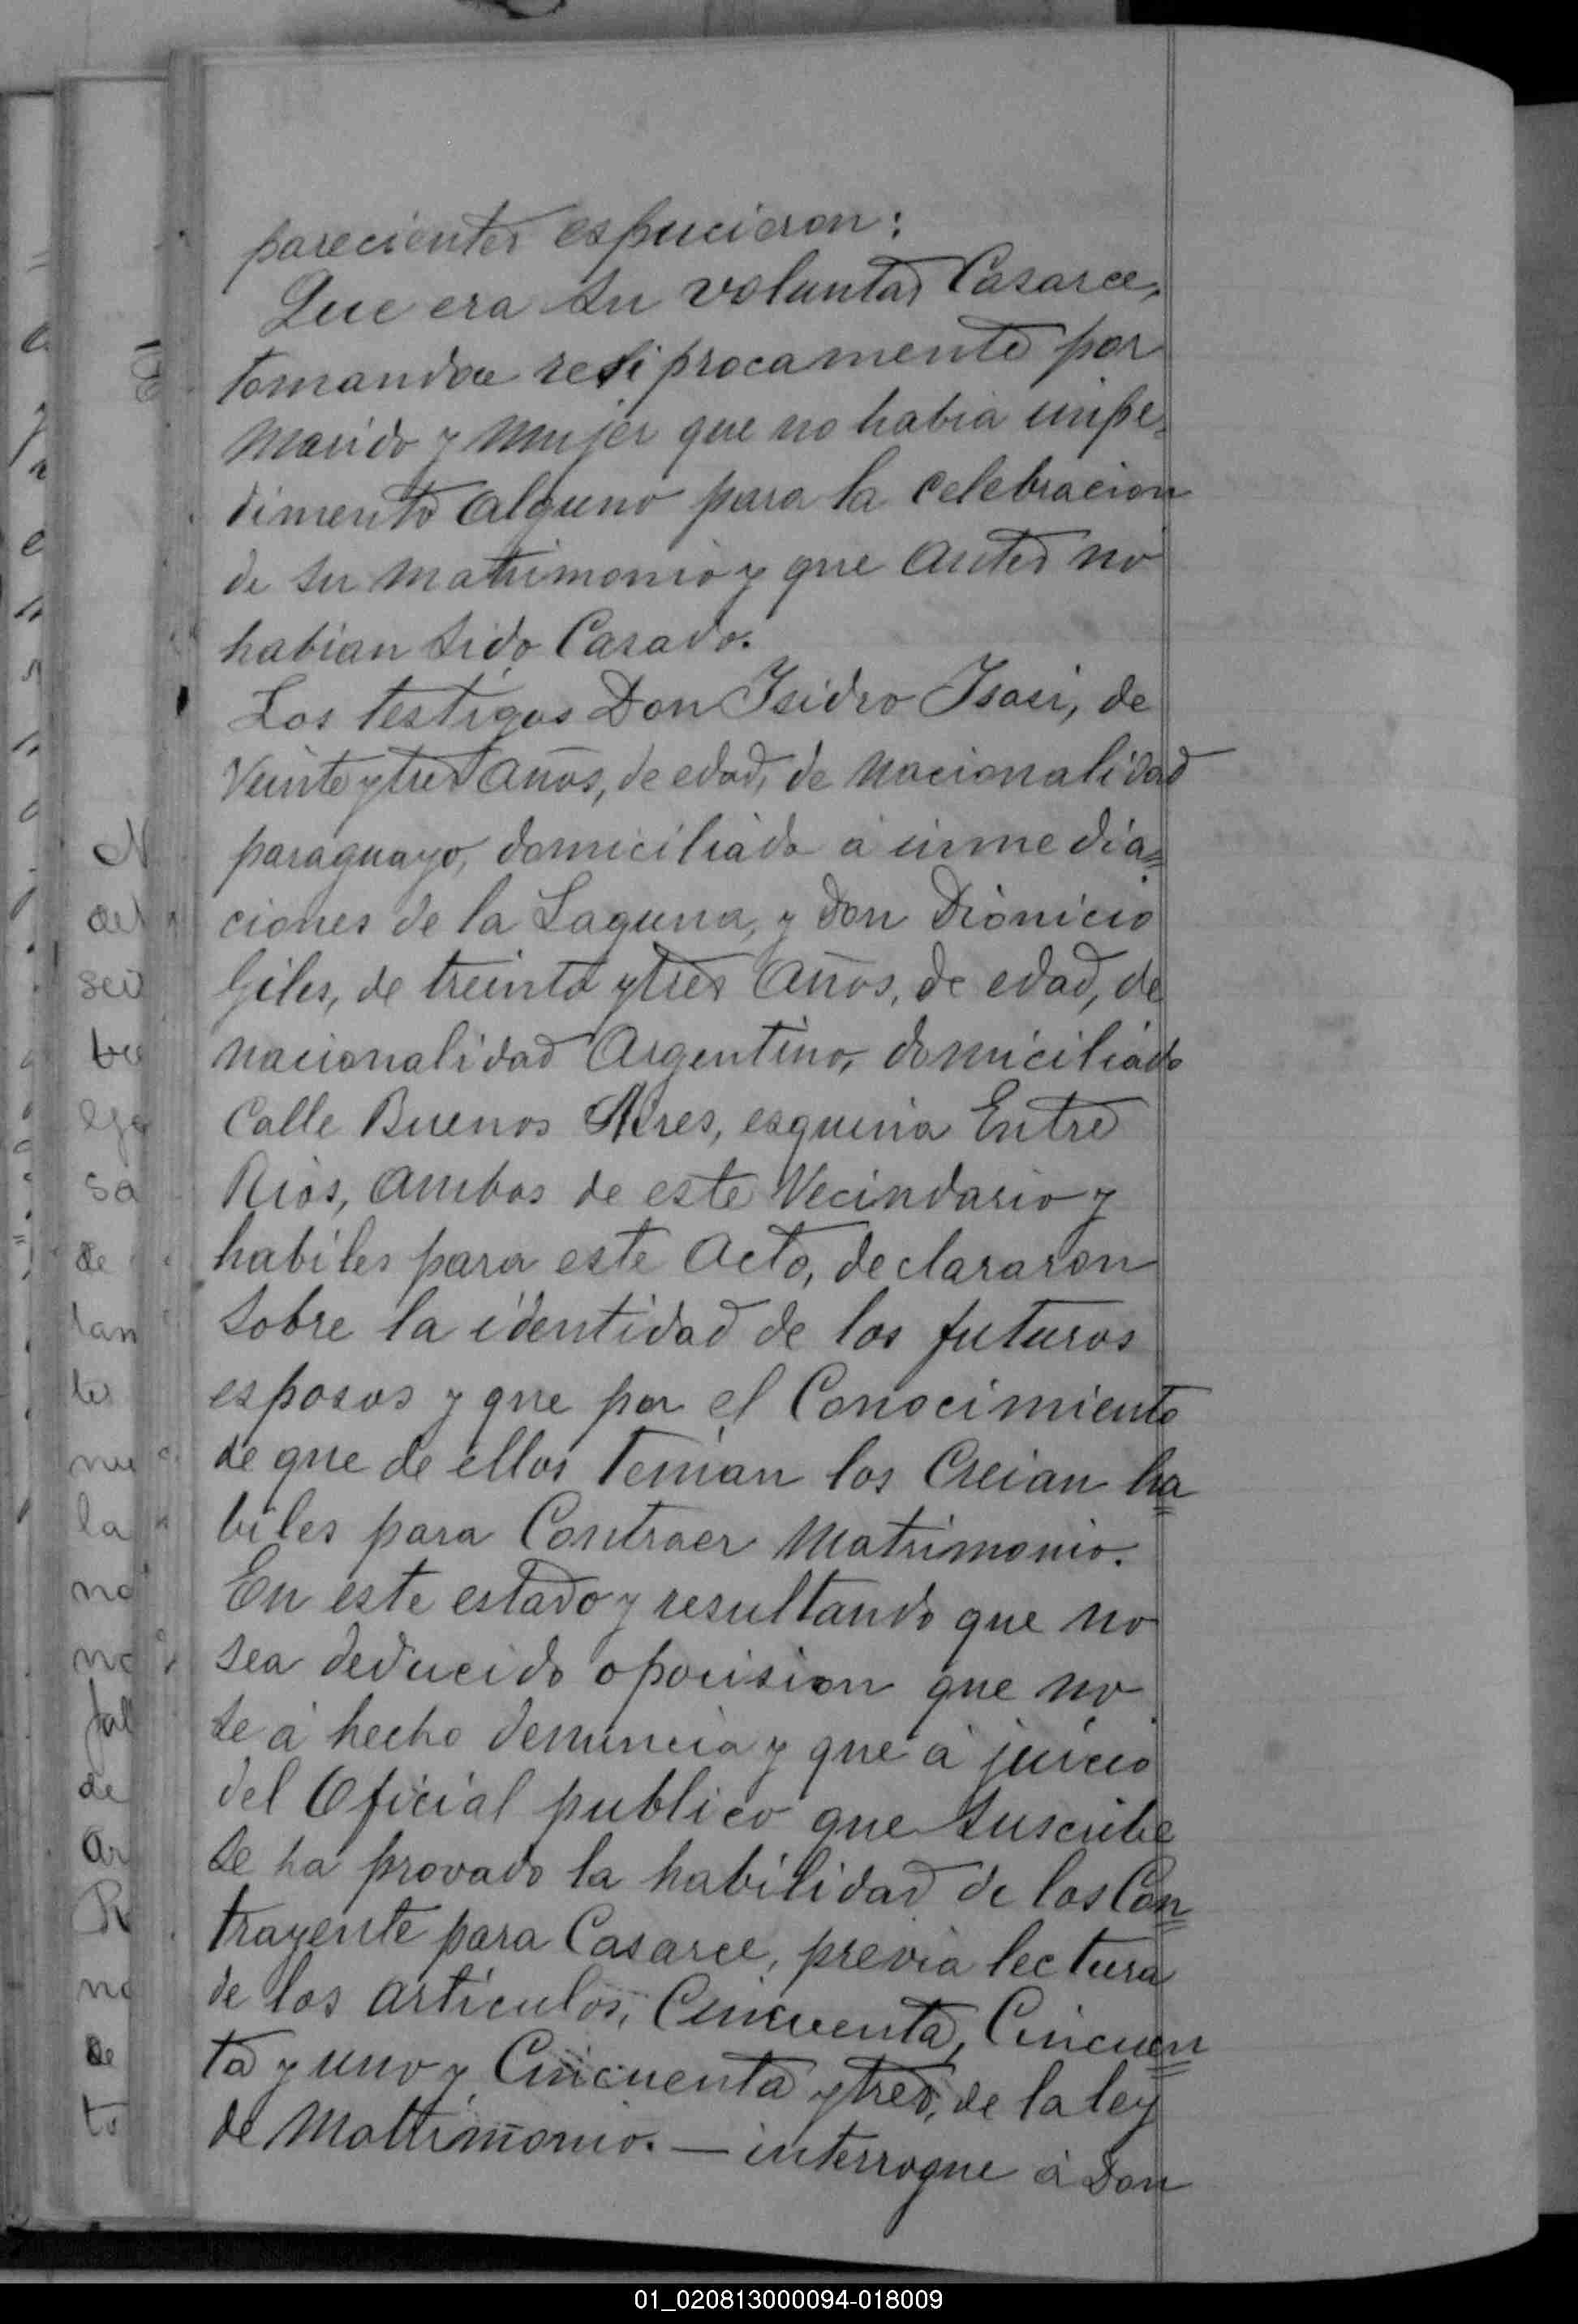 parecientes espucieron:
Que era su voluntad Casarce,
tomandoce reciprocamente por
Marido y Mujer que no habia impe-
dimento alguno para la celebracion
de su matrimonio y que antes no
habian sido Casado.
Los testigos Don Isidro Isasi, de
Veinte y tres años, de edad, de nacionalidad
paraguayo, domiciliado a inmedia=
ciones de la Laguna, y Don Dionicio
Giles, de treinta y tres años, de edad, de
nacionalidad Argentino, domiciliado
Calle Buenos Aires, esquina Entre
Rios, ambos de este Vecindario y
habiles para este acto, declararon
sobre la identidad de los futuros
esposos y que por el Conocimiento
de que de ellos tenian los Creian ha=
biles para Contraer Matrimonio.
En este estado y resultando que no
sea deducido opocision que no
se á hecho denuncia y que á juicio
del Oficial publico que suscribe
se ha provado la habilidad de los Con=
trayente para Casarce, previa lectura
de los articulos, Cincuenta, Cincuen=
ta y uno y Cincuenta y tres, de la ley
de Matrimonio. — interrogue á Don
N
del
sei
bu
sa
de
tan
tes
nu
la
no
no
fal
de
ar
R
no
de
to
01_020813000094-018009